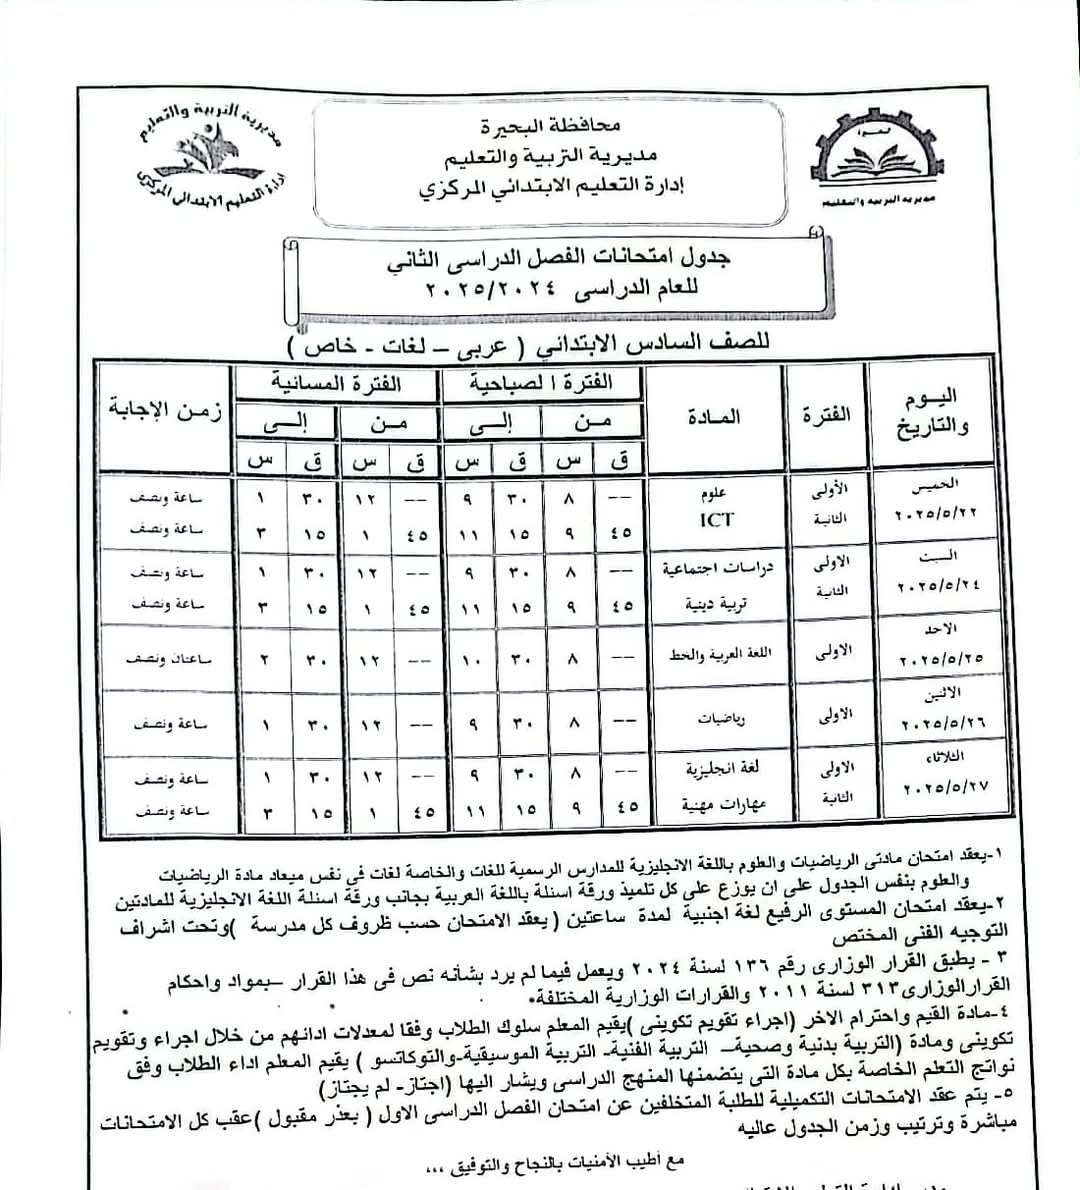 مديرية التربية والتعليم
إدارة التعليم الابتدائي المركزي
مديرية التربية والتعليم
محافظة البحيرة
مديرية التربية والتعليم
إدارة التعليم الابتدائي المركزي
جدول امتحانات الفصل الدراسى الثاني
للعام الدراسى ٢٠٢٥/٢٠٢٤
للصف السادس الابتدائي ( عربي – لغات - خاص )
اليوم والتاريخ | الفترة | المادة | الفترة الصباحية | الفترة المسائية | زمن الإجابة
من | إلى | من | إلى
ق | س | ق | س | ق | س | ق | س
الخميس ٢٠٢٥/٥/٢٢ | الأولى | علوم | -- | ٨ | ٣٠ | ٩ | -- | ١٢ | ٣٠ | ١ | ساعة ونصف
الثانية | ICT | ٤٥ | ٩ | ١٥ | ١١ | ٤٥ | ١ | ١٥ | ٣ | ساعة ونصف
السبت ٢٠٢٥/٥/٢٤ | الاولى | دراسات اجتماعية | -- | ٨ | ٣٠ | ٩ | -- | ١٢ | ٣٠ | ١ | ساعة ونصف
الثانية | تربية دينية | ٤٥ | ٩ | ١٥ | ١١ | ٤٥ | ١ | ١٥ | ٣ | ساعة ونصف
الاحد ٢٠٢٥/٥/٢٥ | الاولى | اللغة العربية والخط | -- | ٨ | ٣٠ | ١٠ | -- | ١٢ | ٣٠ | ٢ | ساعتان ونصف
الاثنين ٢٠٢٥/٥/٢٦ | الاولى | رياضيات | -- | ٨ | ٣٠ | ٩ | -- | ١٢ | ٣٠ | ١ | ساعة ونصف
الثلاثاء ٢٠٢٥/٥/٢٧ | الاولى | لغة انجليزية | -- | ٨ | ٣٠ | ٩ | -- | ١٢ | ٣٠ | ١ | ساعة ونصف
الثانية | مهارات مهنية | ٤٥ | ٩ | ١٥ | ١١ | ٤٥ | ١ | ١٥ | ٣ | ساعة ونصف
١-يعقد امتحان مادتى الرياضيات والعلوم باللغة الانجليزية للمدارس الرسمية للغات والخاصة لغات فى نفس ميعاد مادة الرياضيات
والعلوم بنفس الجدول على ان يوزع على كل تلميذ ورقة اسئلة باللغة العربية بجانب ورقة اسئلة اللغة الانجليزية للمادتين
٢-يعقد امتحان المستوى الرفيع لغة اجنبية لمدة ساعتين ( يعقد الامتحان حسب ظروف كل مدرسة )وتحت اشراف
التوجيه الفنى المختص
٣ - يطبق القرار الوزارى رقم ١٣٦ لسنة ٢٠٢٤ ويعمل فيما لم يرد بشأنه نص فى هذا القرار –بمواد واحكام
القرار الوزارى٣١٣ لسنة ٢٠١١ والقرارات الوزارية المختلفة*
٤-مادة القيم واحترام الاخر (اجراء تقويم تكوينى )يقيم المعلم سلوك الطلاب وفقا لمعدلات ادائهم من خلال اجراء وتقويم
تكوينى ومادة (التربية بدنية وصحية– التربية الفنية- التربية الموسيقية-والتوكاتسو ) يقيم المعلم اداء الطلاب وفق
نواتج التعلم الخاصة بكل مادة التى يتضمنها المنهج الدراسى ويشار اليها (اجتاز- لم يجتاز)
٥- يتم عقد الامتحانات التكميلية للطلبة المتخلفين عن امتحان الفصل الدراسى الاول ( بعذر مقبول )عقب كل الامتحانات
مباشرة وترتيب وزمن الجدول عاليه
مع أطيب الأمنيات بالنجاح والتوفيق ...